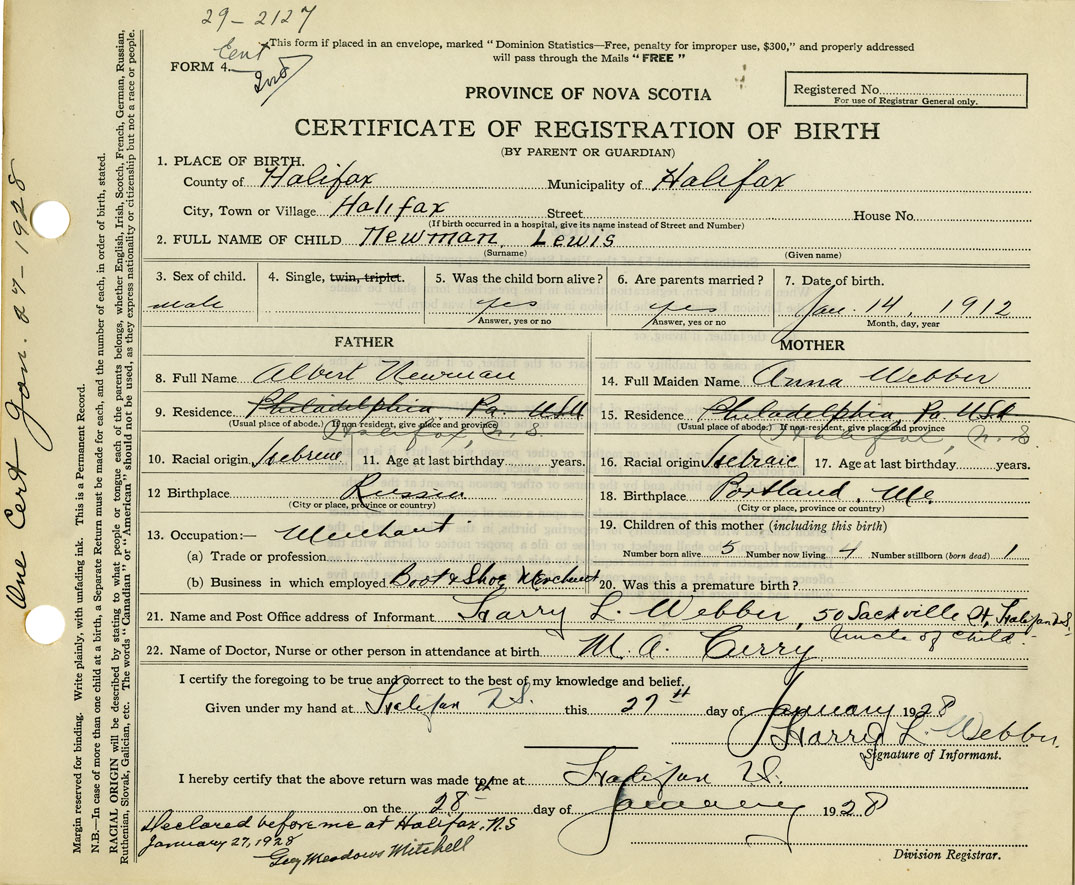 29-2127
Cent
This form if placed in an envelope, marked "Dominion Statistics—Free, penalty for improper use, $300," and properly addressed
will pass through the Mails "FREE"
FORM 4.
PROVINCE OF NOVA SCOTIA
Registered No.
For use of Registrar General only.
CERTIFICATE OF REGISTRATION OF BIRTH
(BY PARENT OR GUARDIAN)
1. PLACE OF BIRTH.
County of Halifax Municipality of Halifax
City, Town or Village Halifax Street House No.
(If birth occurred in a hospital, give its name instead of Street and Number)
2. FULL NAME OF CHILD Newman, Lewis
(Surname) (Given name)
3. Sex of child. 4. Single, twin, triplet. 5. Was the child born alive? 6. Are parents married? 7. Date of birth.
male yes yes Jan. 14, 1912
Answer, yes or no Answer, yes or no Month, day, year
FATHER MOTHER
8. Full Name Albert Newman 14. Full Maiden Name Anna Webber
9. Residence Philadelphia, Pa. USA 15. Residence Philadelphia, Pa USA
(Usual place of abode.) If non resident, give place and province (Usual place of abode.) If non-resident, give place and province
Halifax, N.S. Halifax, N.S.
10. Racial origin Hebrew 11. Age at last birthday years. 16. Racial origin Hebraic 17. Age at last birthday years.
12 Birthplace Russia 18. Birthplace Portland, Me.
(City or place, province or country) (City or place, province or country)
13. Occupation:— Merchant 19. Children of this mother (including this birth)
(a) Trade or profession Number born alive 5 Number now living 4 Number stillborn (born dead) 1
(b) Business in which employed Boot & Shoe Merchant 20. Was this a premature birth?
21. Name and Post Office address of Informant Harry L. Webber, 50 Sackville St, Halifax N.S.
Uncle of Child.
22. Name of Doctor, Nurse or other person in attendance at birth M. A. Curry
I certify the foregoing to be true and correct to the best of my knowledge and belief.
Given under my hand at Halifax N.S. this 27th day of January 1928
Harry L. Webber.
Signature of Informant.
I hereby certify that the above return was made to me at Halifax N.S.
on the 28th day of January 1928
Declared before me at Halifax, N.S
January 27, 1928
Guy Meadows Mitchell
Division Registrar.
One Cert Jan. 27-1928
Margin reserved for binding. Write plainly, with unfading ink. This is a Permanent Record.
N.B.—In case of more than one child at a birth, a Separate Return must be made for each, and the number of each, in order of birth, stated.
RACIAL ORIGIN will be described by stating to what people or tongue each of the parents belongs, whether English, Irish, Scotch, French, German, Russian,
Ruthenian, Slovak, Galician, etc. The words "Canadian" or "American" should not be used, as they express nationality or citizenship but not a race or people.